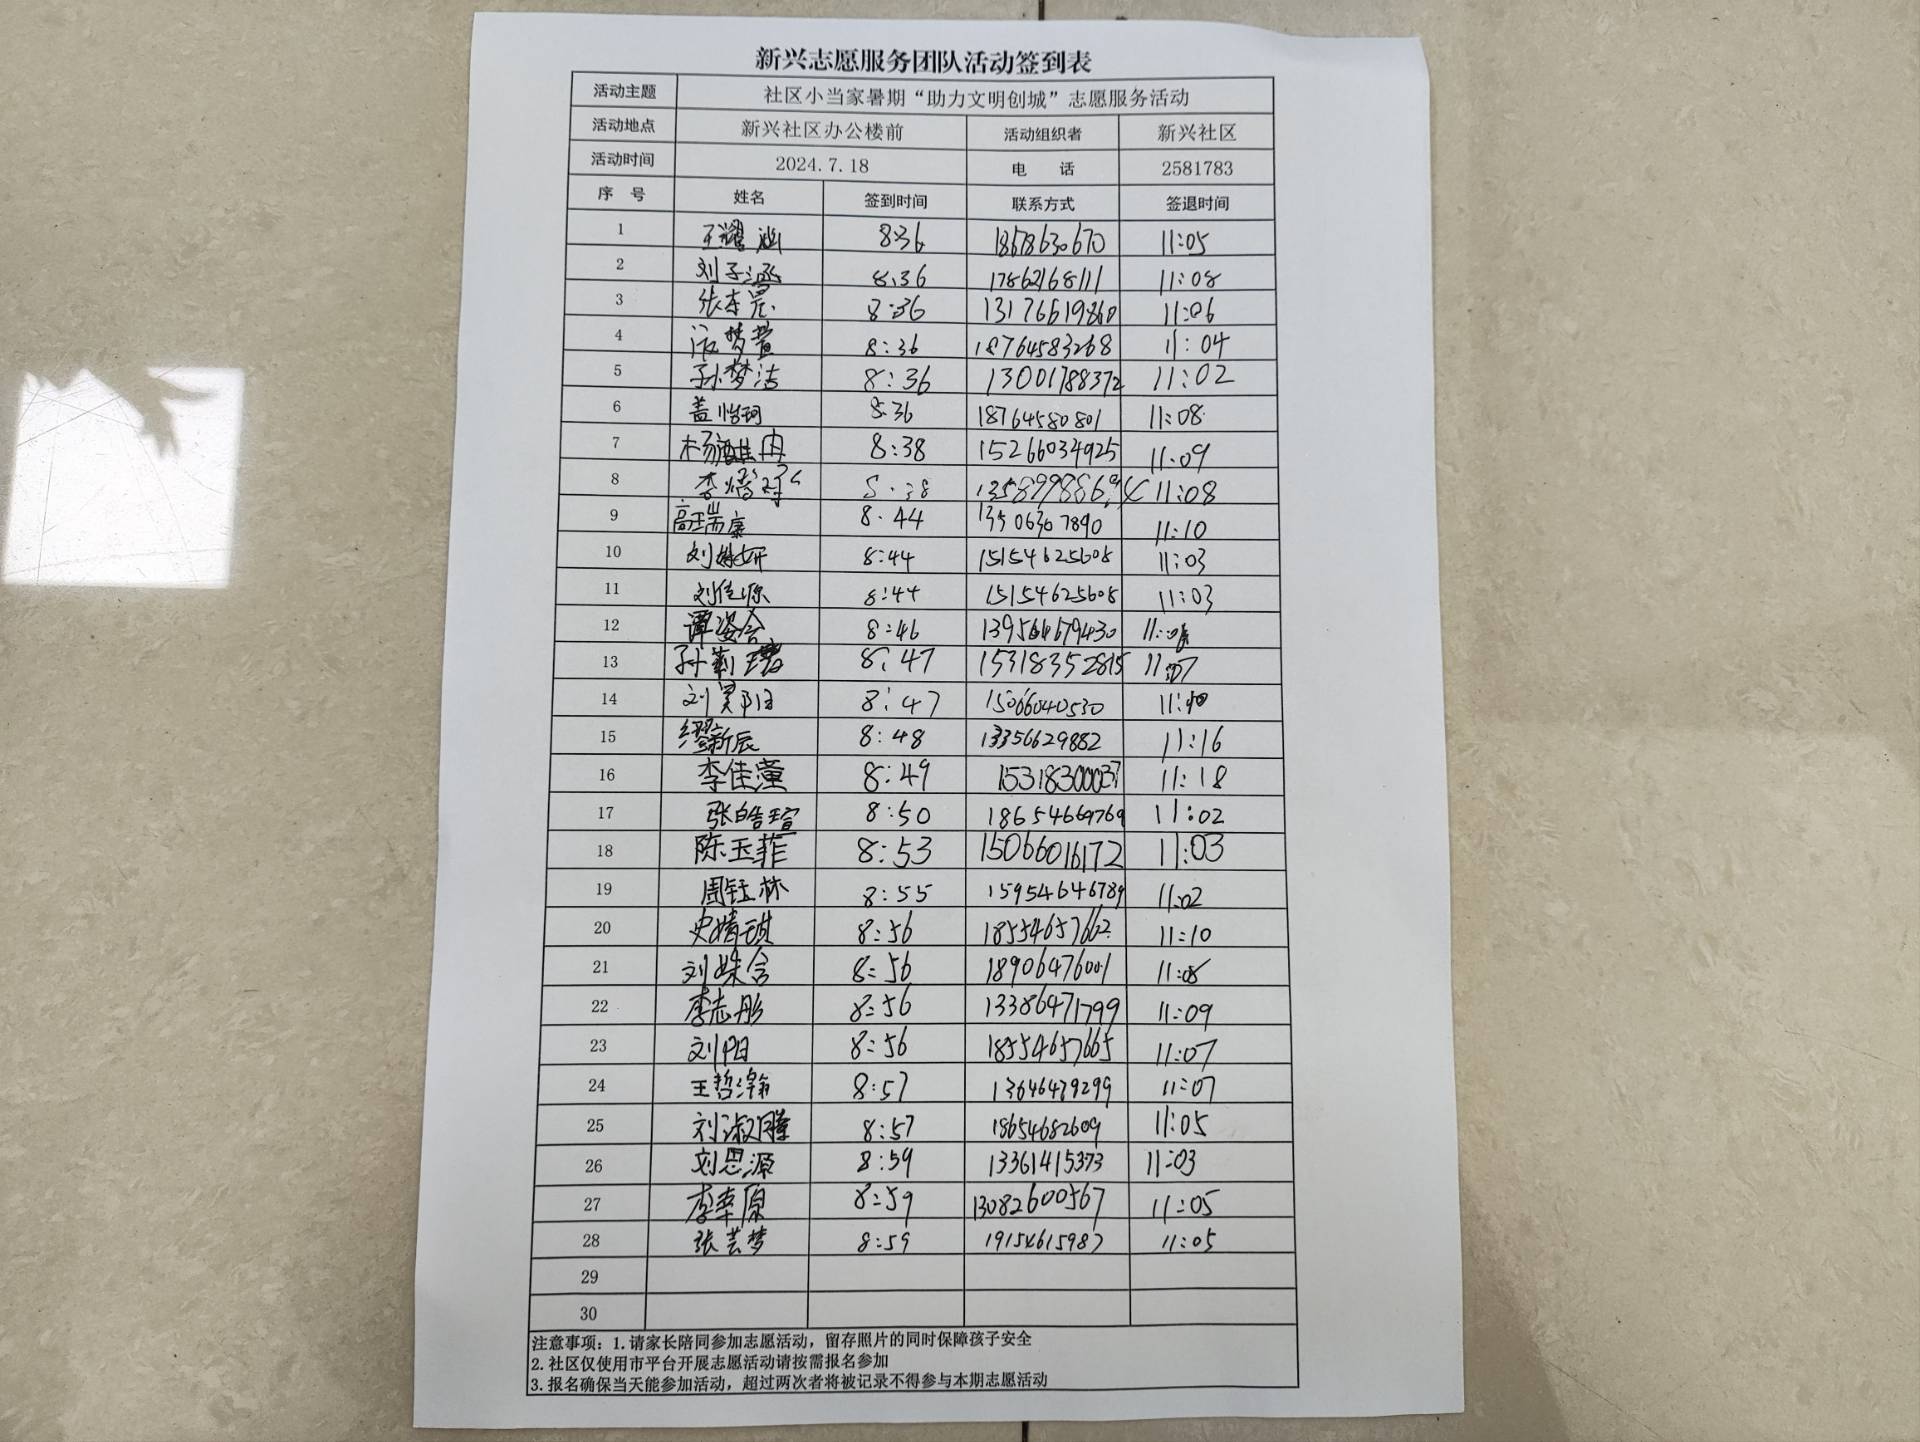 新兴志愿服务团队活动签到表
活动主题 社区小当家暑期“助力文明创城”志愿服务活动
活动地点 新兴社区办公楼前 活动组织者 新兴社区
活动时间 2024.7.18 电 话 2581783
序 号 姓名 签到时间 联系方式 签退时间
1 8:36 18678630670 11:05
2 刘子涵 8:36 17862168111 11:08
3 张东晨 8:36 13176619860 11:06
4 8:36 18764583268 11:04
5 孙梦洁 8:36 13001788372 11:02
6 盖怡珂 8:36 18764580801 11:08
7 8:38 15266034925 11:09
8 8:38 11:08
9 高瑞康 8:44 13506307890 11:10
10 8:44 15154625608 11:03
11 刘佳源 8:44 15154625608 11:03
12 谭姿含 8:46 139564679430
13 8:47 15318352815 11:07
14 刘昊阳 8:47 15066040530
15 缪新辰 8:48 13356629882 11:16
16 李佳潼 8:49 15318300037 11:18
17 张皓瑄 8:50 18654669769 11:02
18 陈玉菲 8:53 15066016172 11:03
19 周钰林 8:55 15954646789 11:02
20 史婧琪 8:56 18554657662 11:10
21 刘姝含 8:56 18906476001 11:08
22 李志彤 8:56 13386471799 11:09
23 刘阳 8:56 18554657665 11:07
24 王哲瀚 8:57 13646479299 11:07
25 8:57 18654682609 11:05
26 刘思源 8:59 13361415373 11:03
27 8:59 13082600567 11:05
28 张芸梦 8:59 19154615987 11:05
29
30
注意事项：1.请家长陪同参加志愿活动，留存照片的同时保障孩子安全
2.社区仅使用市平台开展志愿活动请按需报名参加
3.报名确保当天能参加活动，超过两次者将被记录不得参与本期志愿活动